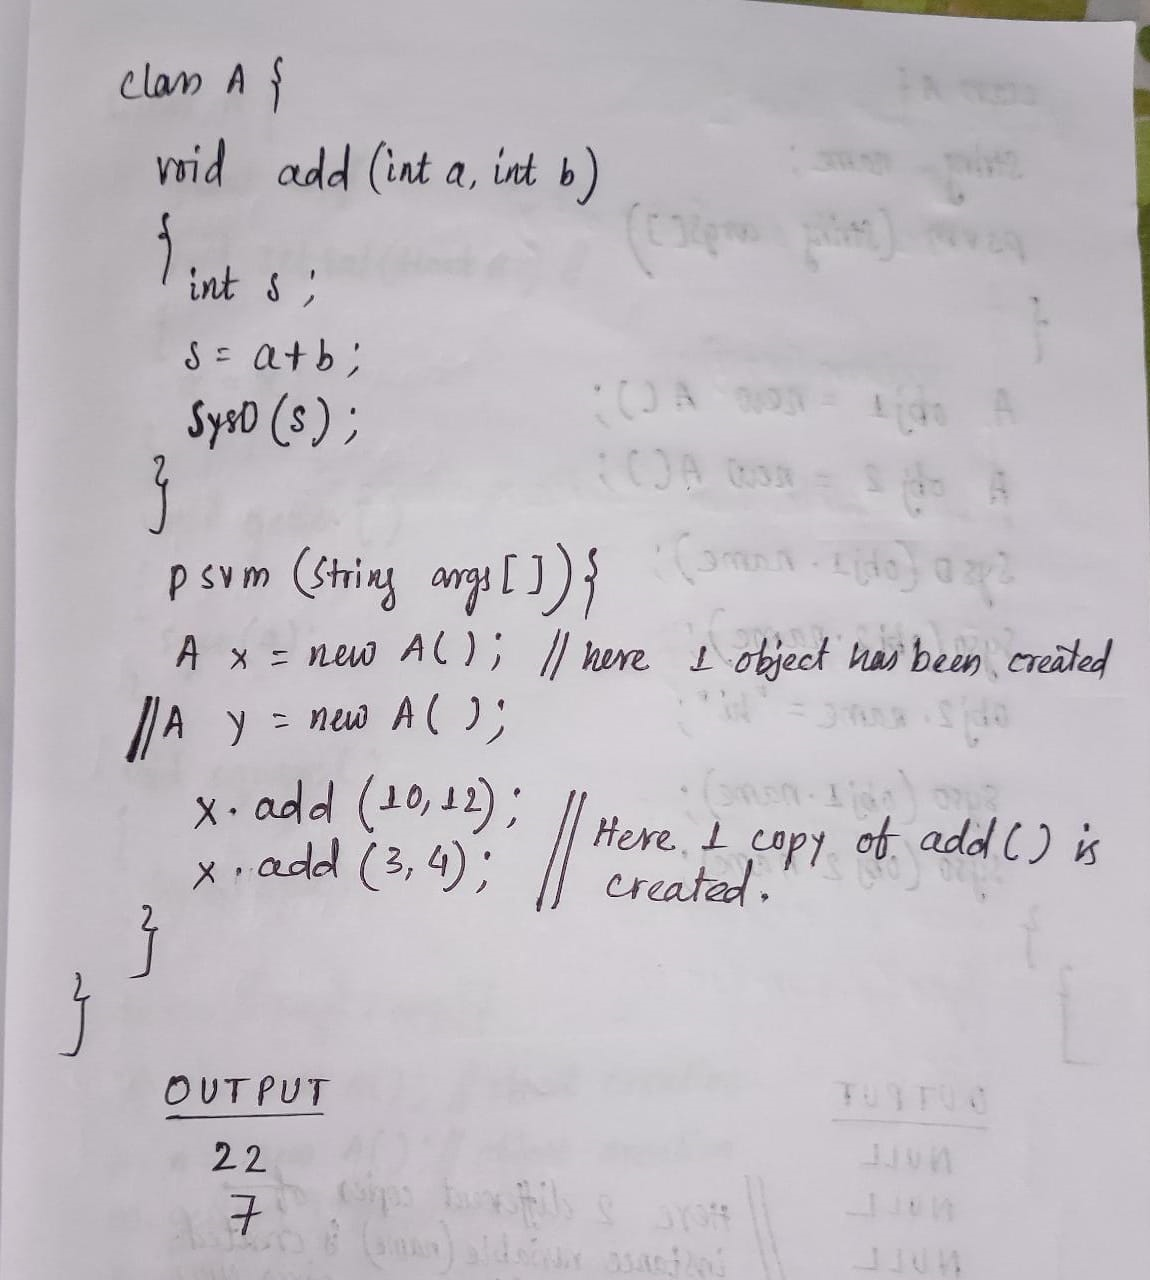 class A {
void add (int a, int b)
{
int s ;
s = a+b ;
SysO (s) ;
}
psvm (String args [ ]) {
A x = new A( ) ; // here 1 object has been created
//A y = new A( ) ;
x. add (10, 12) ;
x. add (3, 4) ; // Here 1 copy of add( ) is
created.
}
}
OUTPUT
22
7